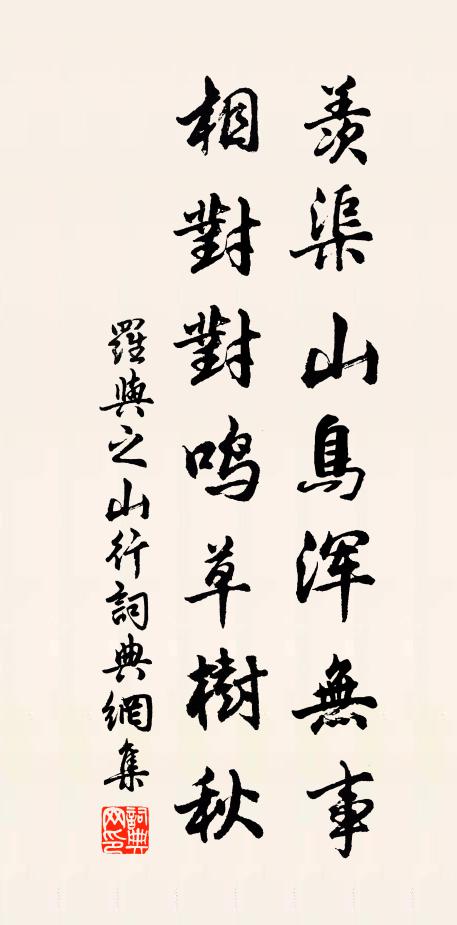 羨渠山鳥渾無事
相對對鳴草樹秋
羅與之山行詞典網集
詞典网印